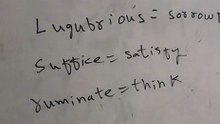 Lugubrious = sorrow
Suffice = satisfy
ruminate = think